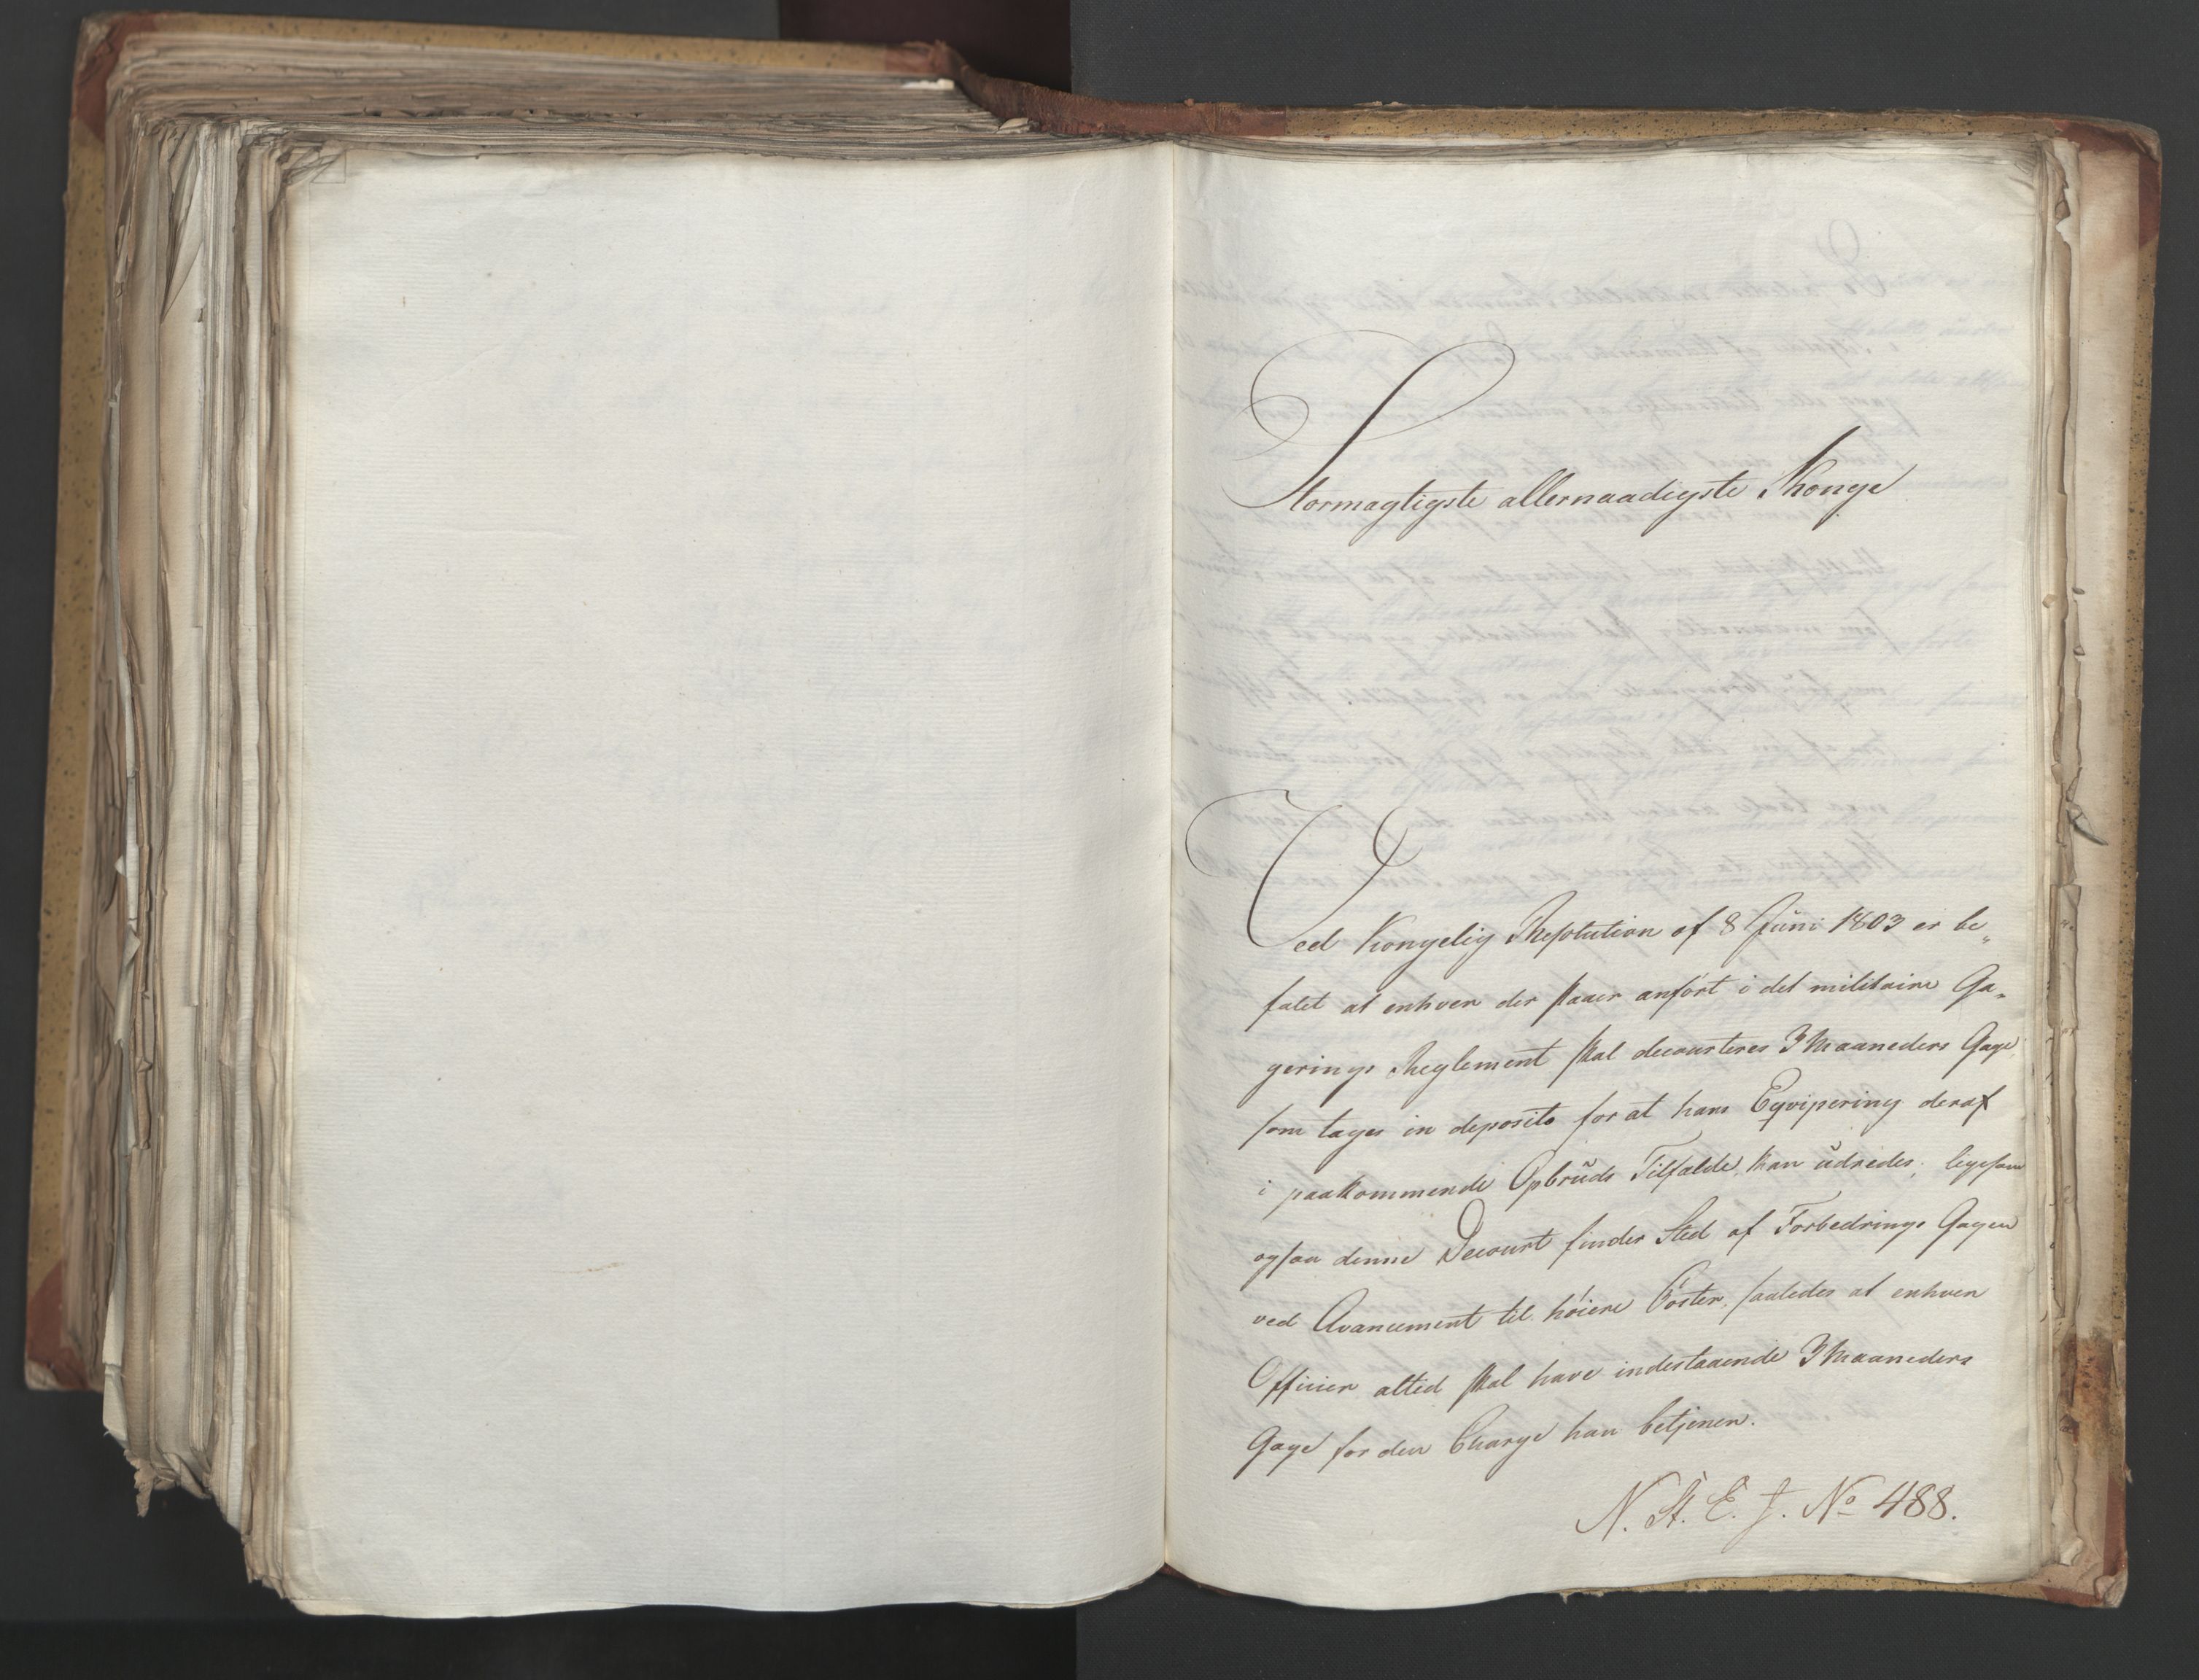 Stormagtigste allernaadigste Konge
Ved Kongelig Resolution af 8 Juni 1803 er be„
falet at enhver der staaer anført i det militaire Ga„
gerings Reglement skal decourteres 3 Maaneders Gage
som tages in deposito for at hans Eqvipering deraf
i paakommende Opbruds Tilfælde, kan udredes, ligesom
ogsaa denne Decourt finder Sted af Forbedrings Gagen
ved Avancement til høiere Poster, saaledes at enhver
Officier altid skal have indestaaende 3 Maaneders
Gage for den Charge han betjener.
N. St. E. J. No 488.